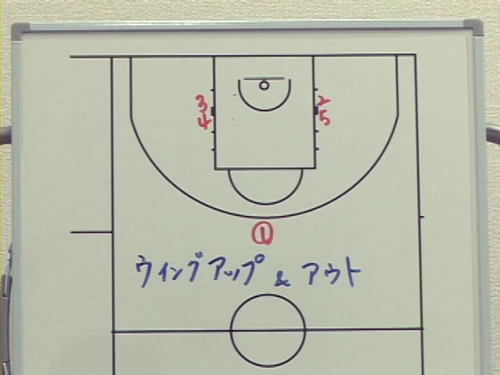 3 2
4 5
①
ウイングアップ & アウト